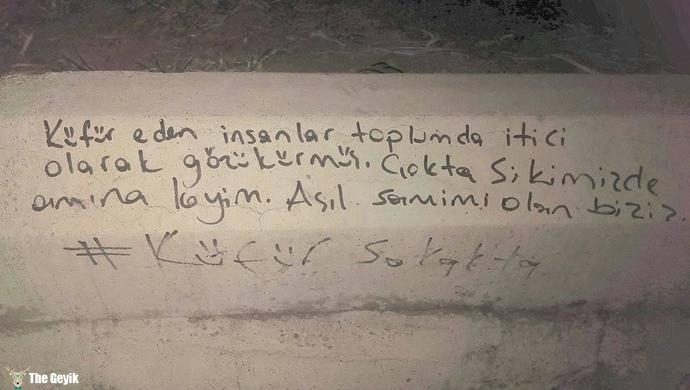 Küfür eden insanlar toplumda itici
olarak gözükürmüş. Çokta Sikimizde
amına koyim. Asıl samimi olan biziz.
#Küfür Sokakta
The Geyik